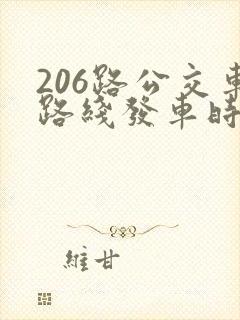 206路公交車
路綫發車時
維甘